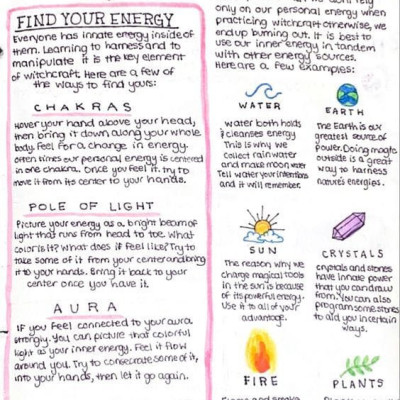 FIND YOUR ENERGY
Everyone has innate energy inside of
them. Learning to harness and to
manipulate it is the key element
of witchcraft. Here are a few of
the ways to find yours:
CHAKRAS
Hover your hand above your head,
then bring it down along your whole
body. Feel for a change in energy.
often times our personal energy is centered
in one chakra. Once you feel it, try to
move it from its center to your hands.
POLE OF LIGHT
Picture your energy as a bright beam of
light that runs from head to toe. What
color is it? What does it feel like? Try to
take some of it from your center and bring
it to your hands. Bring it back to your
center once you have it.
AURA
IF you feel connected to your aura
strongly. You can picture that colorful
light as your inner energy. Feel it flow
around you. Try to consecrate some of it,
into your hands, then let it go again.
only on our personal energy when
practicing witchcraft otherwise, we
end up burning out. It is best to
use our inner energy in tandem
with other energy sources.
Here are a few examples:
WATER
water both holds
& cleanses energy
This is why we
collect rain water
and make moon water
Tell water your intentions
and it will remember.
EARTH
The Earth is our
greatest source of
power. Doing magic
outside is a great
way to harness
nature's energies.
SUN
The reason why we
charge magical tools
in the sun is because
of its powerful energy.
Use it to all of your
advantage.
CRYSTALS
crystals and stones
have innate power
that you can draw
from. You can also
program some stones
to aid you in certain
ways.
FIRE
PLANTS